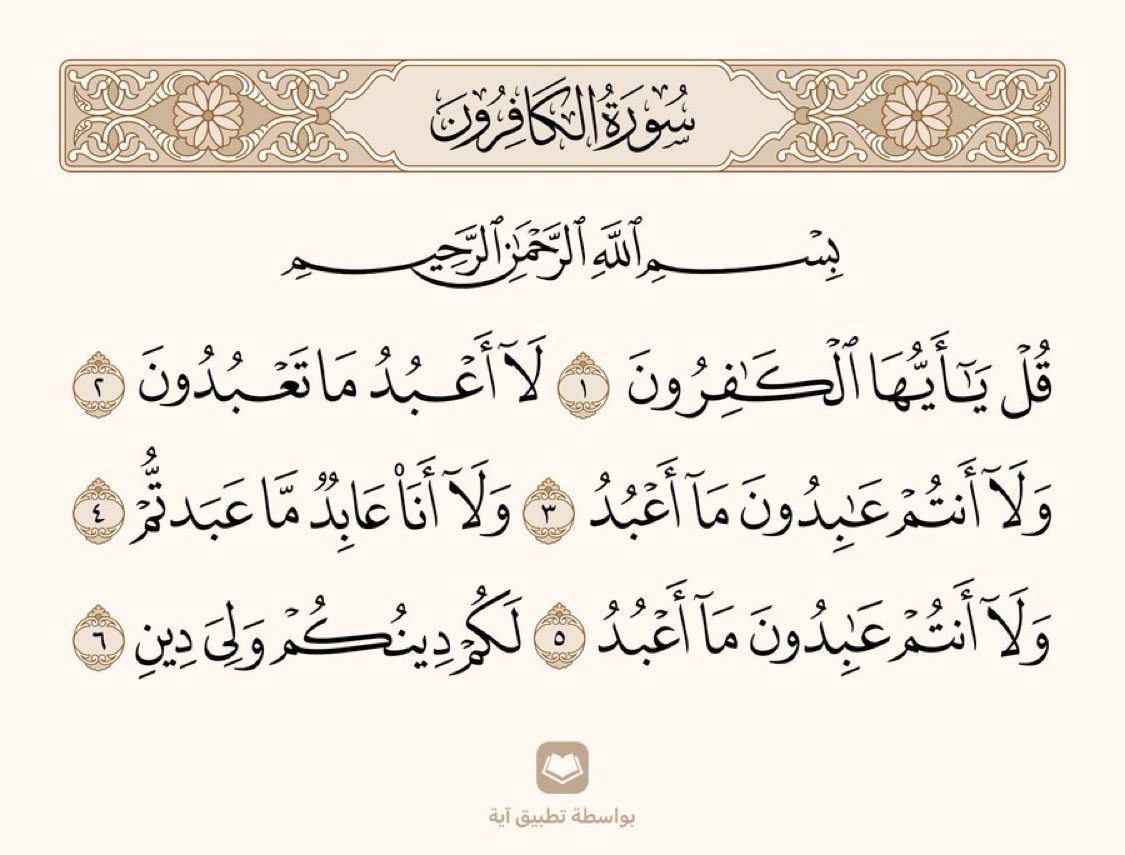 سُورَةُ الكَافِرُونَ
بِسْمِ ٱللَّهِ ٱلرَّحْمَٰنِ ٱلرَّحِيمِ
قُلْ يَٰٓأَيُّهَا ٱلْكَٰفِرُونَ ١ لَآ أَعْبُدُ مَا تَعْبُدُونَ ٢
وَلَآ أَنتُمْ عَٰبِدُونَ مَآ أَعْبُدُ ٣ وَلَآ أَنَا۠ عَابِدٌ مَّا عَبَدتُّمْ ٤
وَلَآ أَنتُمْ عَٰبِدُونَ مَآ أَعْبُدُ ٥ لَكُمْ دِينُكُمْ وَلِىَ دِينِ ٦
بواسطة تطبيق آية